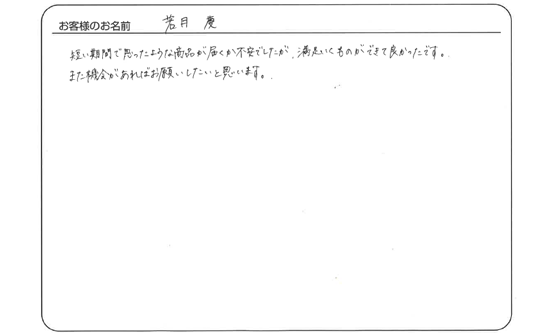 お客様のお名前 若月 慶
短い期間で思ったような商品が届くか不安でしたが、満足いくものができて良かったです。
また機会があればお願いしたいと思います。